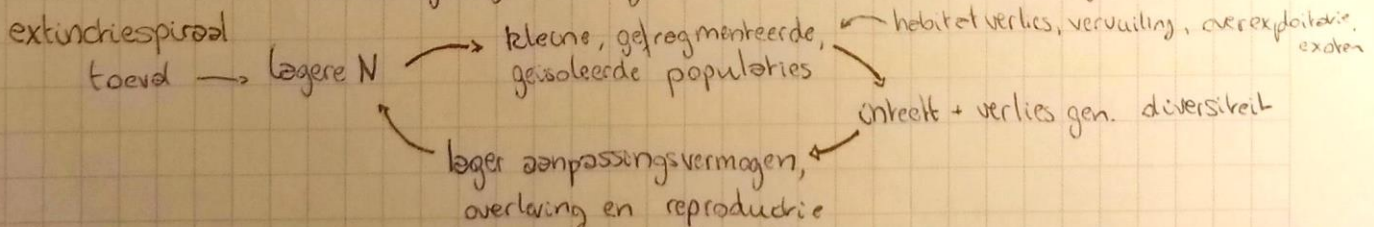 extinctiespiraal
toeval → lagere N
kleine, gefragmenteerde,
geïsoleerde populaties
habitatverlies, vervuiling, overexploitatie,
exoten
inteelt + verlies gen. diversiteit
lager aanpassingsvermogen,
overleving en reproductie